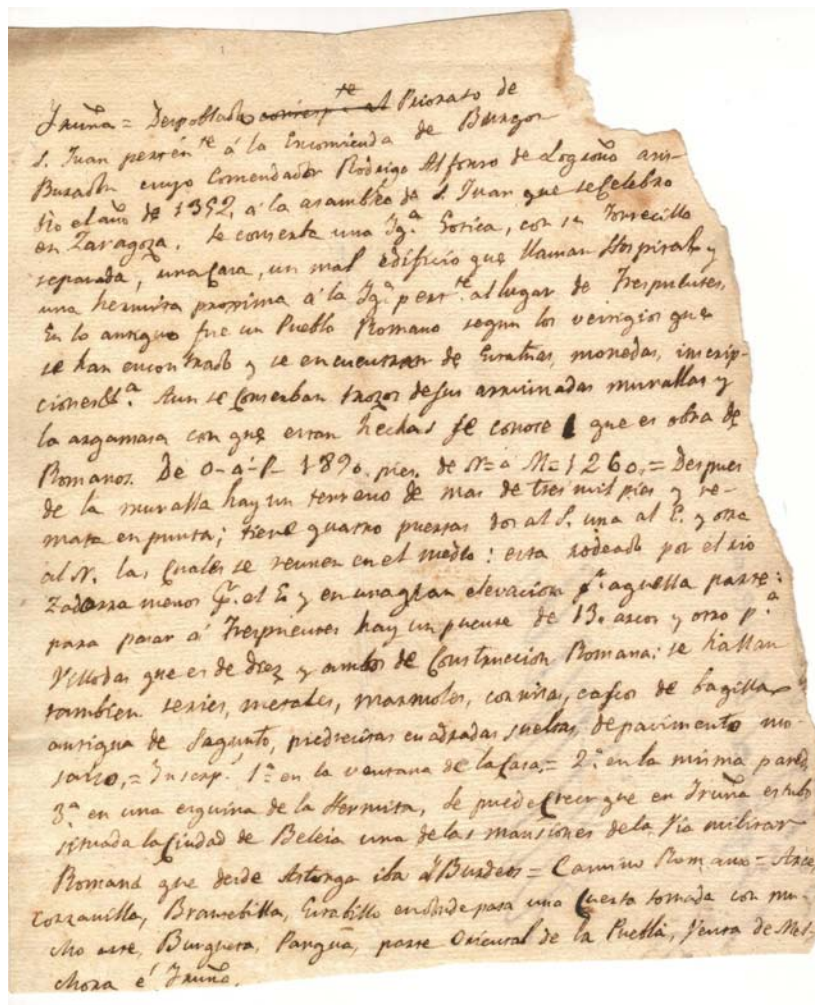 Iruña = Despoblado corresp.te al Priorato de
S. Juan pertén.te á la Encomienda de Burgos
Buradon cuyo Comendador Rodrigo Alfonso de Logroño asis-
tio el año de 1352, á la asamblea de S. Juan que se Celebro
en Zaragoza. Se conserba una Yg.a Gotica, con su torrecilla
separada, una Casa, un mal edificio que llaman Hospital y
una hermita proxima á la Yg.a pert.te al lugar de Trespuentes.
En lo antiguo fue un Pueblo Romano segun los vestigios que
se han encontrado y se encuentran de Estatuas, monedas, inscrip-
ciones &.a Aun se Conserban trozos de sus arruinadas murallas y
la argamasa con que estan hechas se conoce que es obra de
Romanos. De O-á-P- 1890. pies. de N= a M= 1260, = Despues
de la muralla hay un terreno de mas de tres mil pies y re-
mata en punta; tiene quatro puertas dos al S. una al E. y otra
al N. las Quales se reunen en el medio: esta rodeado por el rio
Zadorra menos p.r el E y en una gran elevacion p.r aquella parte:
para pasar á Trespuentes hay un puente de 13. arcos y otro p.a
Villodas que es de diez y ambos de Construccion Romana: se hallan
tambien metales, marmoles, cornisas, cascos de bagilla
antigua de Sagunto, piedrecitas cuadradas sueltas, de pavimento mo-
saico, = Inscrip.s 1.a en la ventana de la Casa, = 2.a en la misma pared,
3.a en una esquina de la Hermita, Se puede Creer que en Iruña estubo
situada la Ciudad de Beleia una de las mansiones de la Via militar
Romana que desde Astorga iba á Burdeos = Camino Romano = Arce,
Estabillo endonde pasa una Cuesta tomada con mu-
cho arte, Burgueta, Pangua, parte Oriental de la Puebla, Venta de Mel-
chora é Iruña.